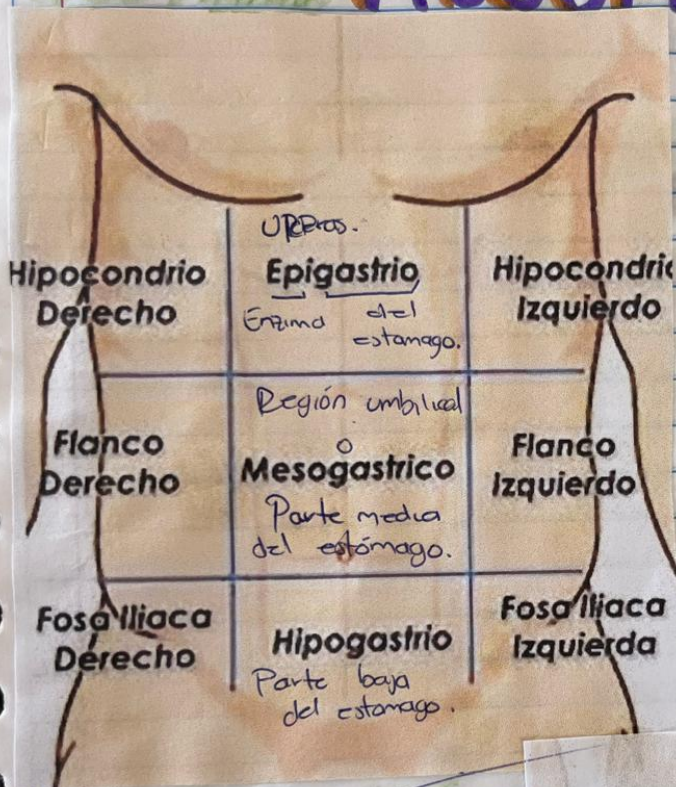 Hipocondrio
Derecho
Epigastrio
Enzima del
estomago.
Hipocondrio
Izquierdo
Región umbilical
o
Flanco
Derecho
Mesogastrico
Parte media
del estómago.
Flanco
Izquierdo
Fosa Iliaca
Derecho
Hipogastrio
Parte baja
del estomago.
Fosa Iliaca
Izquierda